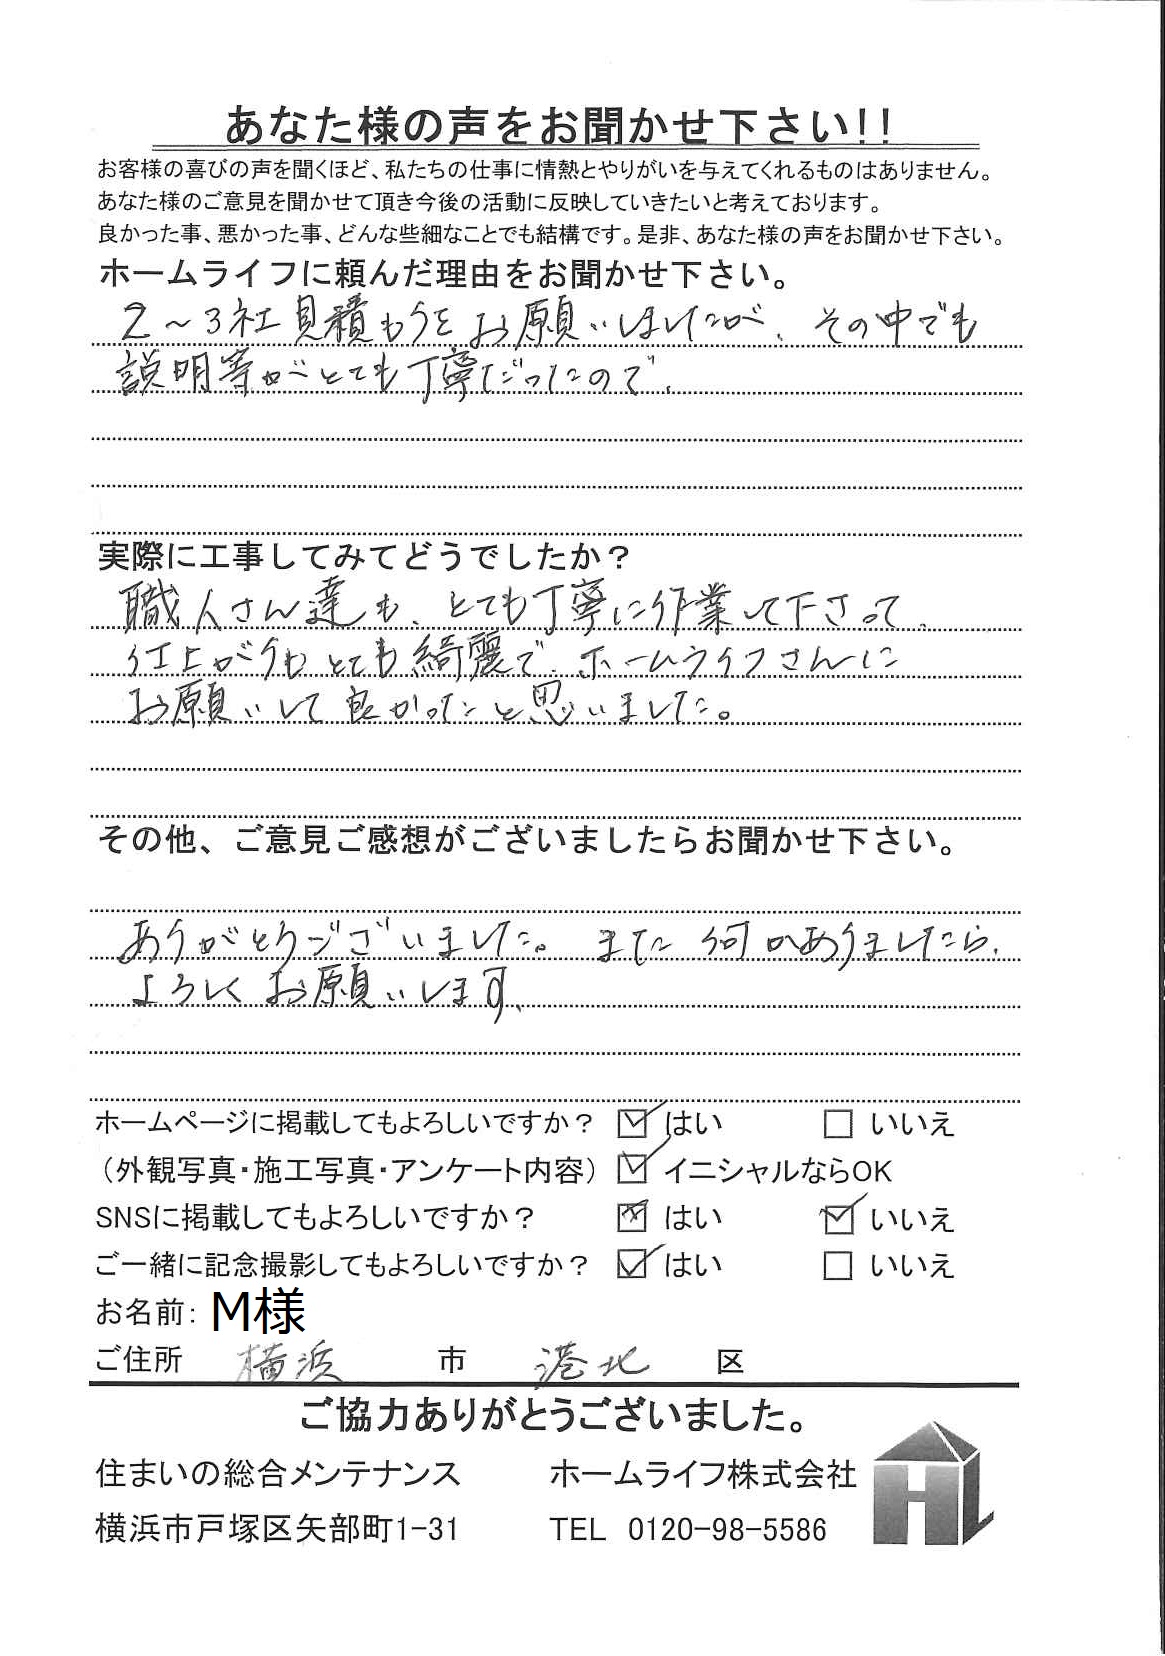 あなた様の声をお聞かせ下さい!!
お客様の喜びの声を聞くほど、私たちの仕事に情熱とやりがいを与えてくれるものはありません。
あなた様のご意見を聞かせて頂き今後の活動に反映していきたいと考えております。
良かった事、悪かった事、どんな些細なことでも結構です。是非、あなた様の声をお聞かせ下さい。
ホームライフに頼んだ理由をお聞かせ下さい。
2~3社見積もりをお願いしましたが、その中でも
説明等がとても丁寧だったので、
実際に工事してみてどうでしたか?
職人さん達も、とても丁寧に作業して下さって、
仕上がりもとても綺麗で、ホームライフさんに
お願いして良かったと思いました。
その他、ご意見ご感想がございましたらお聞かせ下さい。
ありがとうございました。また何かありましたら、
よろしくお願いします、
ホームページに掲載してもよろしいですか? はい いいえ
(外観写真・施工写真・アンケート内容) イニシャルならOK
SNSに掲載してもよろしいですか? はい いいえ
ご一緒に記念撮影してもよろしいですか? はい いいえ
お名前: M様
ご住所 横浜 市 港北 区
ご協力ありがとうございました。
住まいの総合メンテナンス ホームライフ株式会社
横浜市戸塚区矢部町1-31 TEL 0120-98-5586
HL